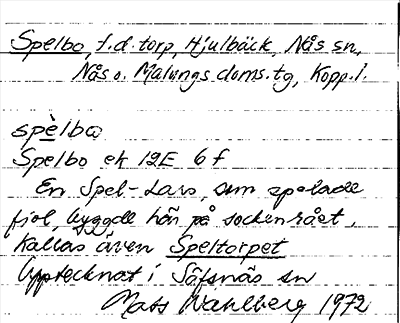 Spelbo, f.d. torp, Hjulbäck, Nås sn,
Nås o. Malungs doms. tg, Kopp. l.
spèlba
Spelbo ek 12E 6f
En Spel-Lars, som spelade
fiol, byggde här på sockenrået.
Kallas även Speltorpet
Upptecknat i Säfsnäs sn
Mats Wahlberg 1972